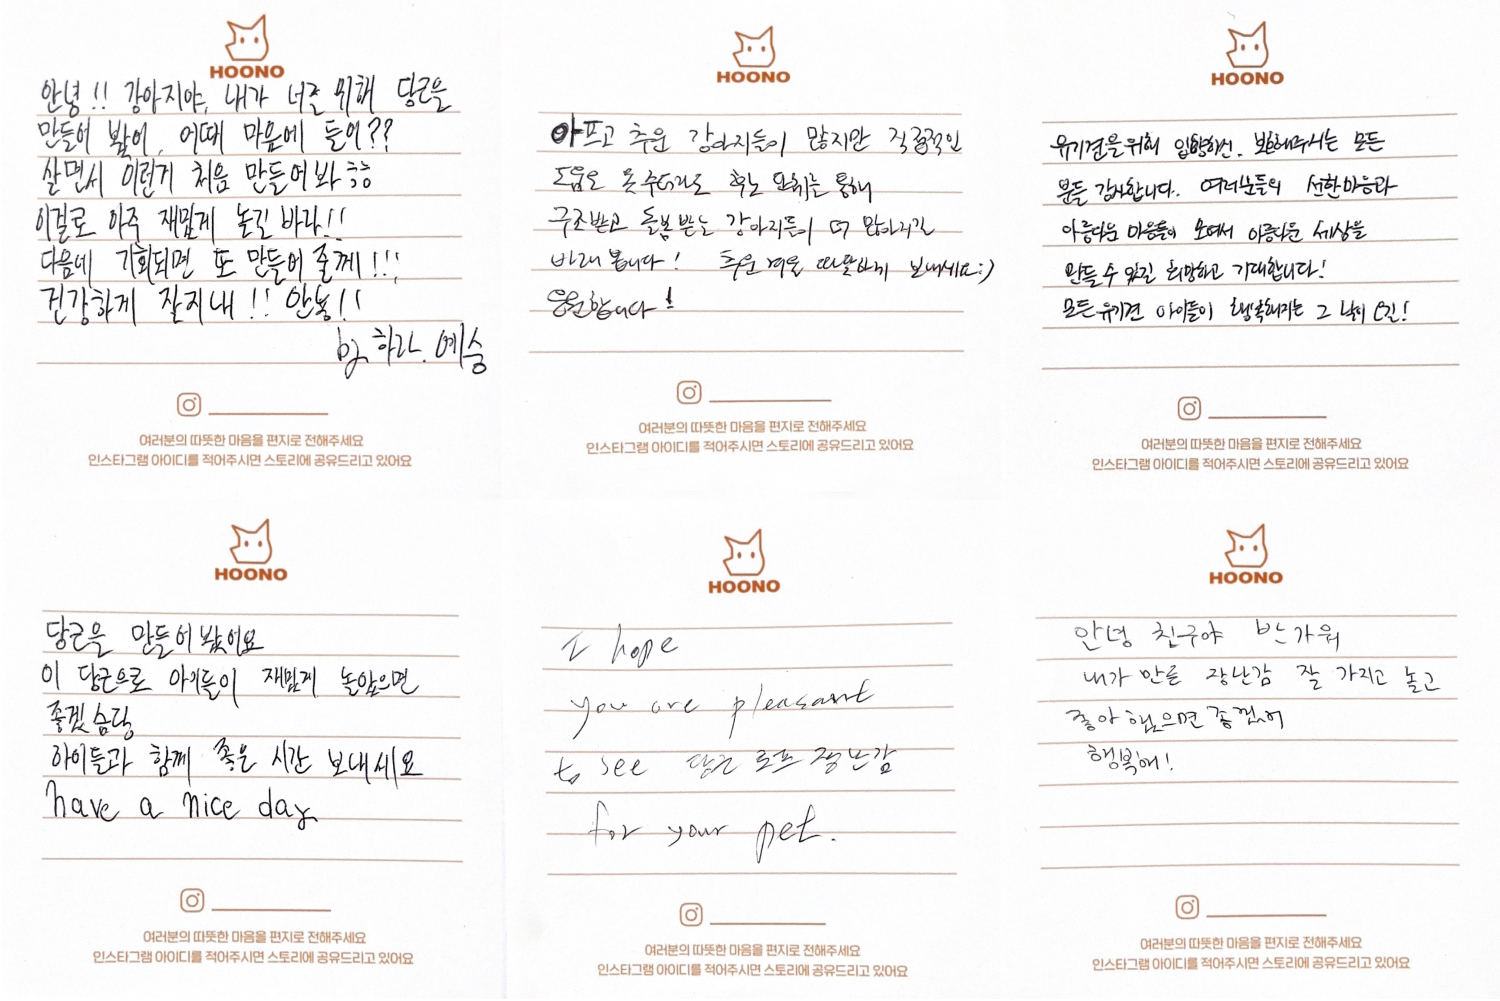 HOONO
안녕!! 강아지야, 내가 너를 위해 당근을
만들어 봤어, 어때 마음에 들어??
살면서 이런거 처음 만들어봐 ㅎㅎ
이걸로 아주 재밌게 놀길 바라!!
다음에 기회되면 또 만들어 줄께!!!
건강하게 잘지내!! 안뇽!!
by. 하라. 예승
여러분의 따뜻한 마음을 편지로 전해주세요
인스타그램 아이디를 적어주시면 스토리에 공유드리고 있어요
HOONO
아프고 추운 강아지들이 많지만 직접적인
도움은 못 주더라도 후노 통해
구조받고 돌봄 받는 강아지들이 더 많아지길
바래 봅니다! 추운 겨울 따뜻하게 보내세요:)
응원합니다!
여러분의 따뜻한 마음을 편지로 전해주세요
인스타그램 아이디를 적어주시면 스토리에 공유드리고 있어요
HOONO
유기견을 위해 모든
분들 감사합니다. 선한마음과
아름다운 마음들이 모여서 아름다운 세상을
만들 수 있길 희망하고 기대합니다!
모든 유기견 아이들이 행복해지는 그 날이 오길!
여러분의 따뜻한 마음을 편지로 전해주세요
인스타그램 아이디를 적어주시면 스토리에 공유드리고 있어요
HOONO
당근을 만들어봤어요
이 당근으로 아이들이 재밌게 놀았으면
좋겠슴당
아이들과 함께 좋은 시간 보내세요
have a nice day
여러분의 따뜻한 마음을 편지로 전해주세요
인스타그램 아이디를 적어주시면 스토리에 공유드리고 있어요
HOONO
I hope
you are pleasant
to see 당근 로프 장난감
for your pet.
여러분의 따뜻한 마음을 편지로 전해주세요
인스타그램 아이디를 적어주시면 스토리에 공유드리고 있어요
HOONO
안녕 친구야 반가워
내가 만든 장난감 잘 가지고 놀고
좋아했으면 좋겠어
행복해!
여러분의 따뜻한 마음을 편지로 전해주세요
인스타그램 아이디를 적어주시면 스토리에 공유드리고 있어요